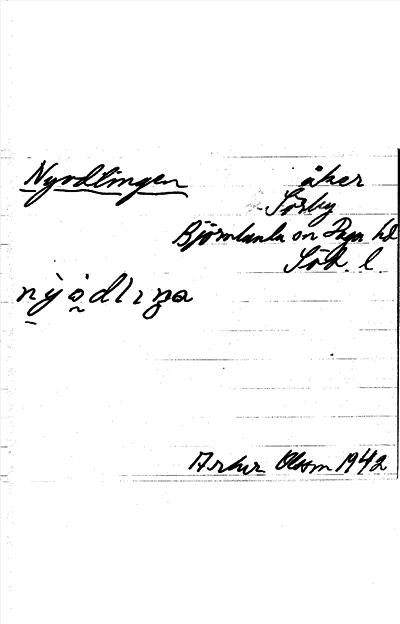 Nyodlingen
åker
Sörby
Björnlunda sn Daga hd
Söd. l.
Artur Olsson 1942